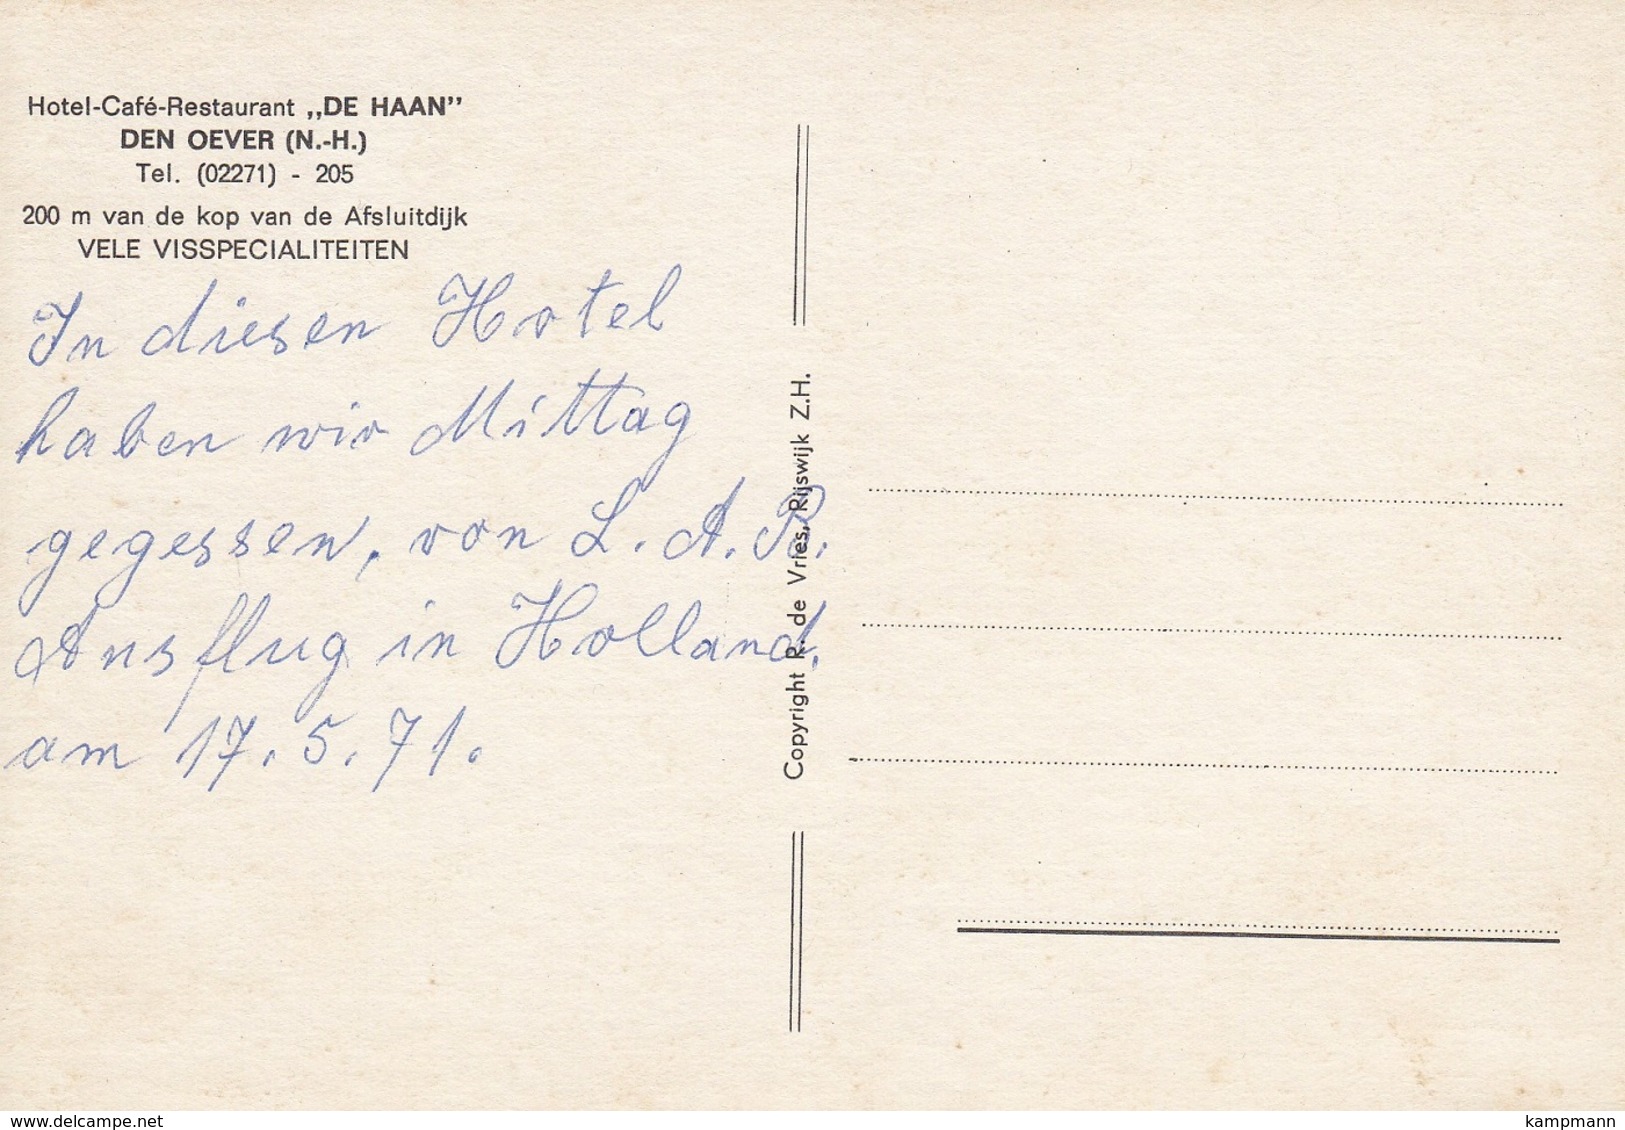 Hotel-Café-Restaurant „DE HAAN”
DEN OEVER (N.-H.)
Tel. (02271) - 205
200 m van de kop van de Afsluitdijk
VELE VISSPECIALITEITEN
In diesen Hotel
haben wir Mittag
gegessen, von L. A. B.
Ausflug in Holland.
am 17. 5. 71.
Copyright R. de Vries, Rijswijk Z.H.
www.delcampe.net
kampmann